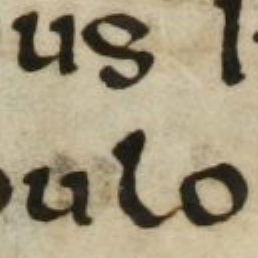 us l
ulo